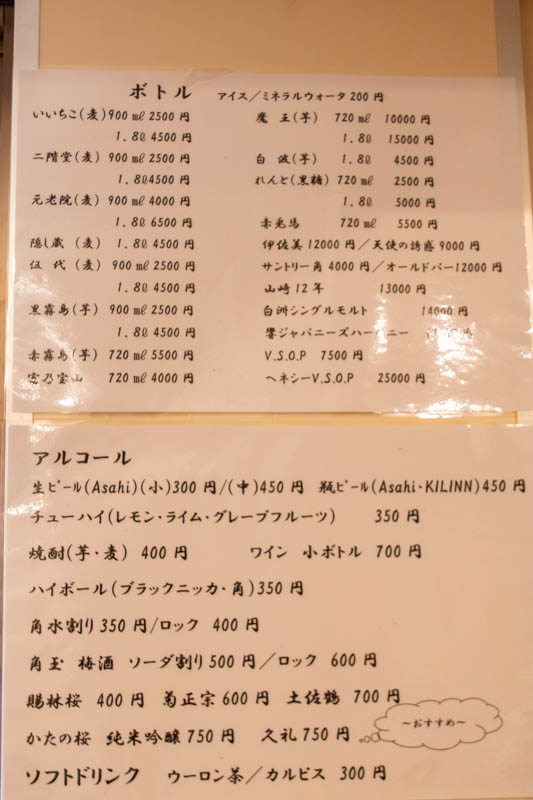 ボトル アイス／ミネラルウォータ 200 円
いいちこ(麦) 900 ㎖ 2500 円
1.8ℓ 4500 円
二階堂(麦) 900 ㎖ 2500 円
1.8ℓ 4500 円
元老院(麦) 900 ㎖ 4000 円
1.8ℓ 6500 円
隠し蔵 (麦) 1.8ℓ 4500 円
伍 代 (麦) 900 ㎖ 2500 円
1.8ℓ 4500 円
黒霧島(芋) 900 ㎖ 2500 円
1.8ℓ 4500 円
赤霧島(芋) 720 ㎖ 5500 円
富乃宝山 720 ㎖ 4000 円
魔 王(芋) 720 ㎖ 10000 円
1.8ℓ 15000 円
白 波(芋) 1.8ℓ 4500 円
れんと(黒糖) 720 ㎖ 2500 円
1.8ℓ 5000 円
赤兎馬 720 ㎖ 5500 円
伊佐美 12000 円／天使の誘惑 9000 円
サントリー角 4000 円／オールドパー12000 円
山崎 12 年 13000 円
白洲シングルモルト 14000 円
響ジャパニーズハーモニー 円
V.S.O.P 7500 円
ヘネシーV.S.O.P 25000 円
アルコール
生ビール(Asahi)(小)300 円/(中)450 円 瓶ビール(Asahi・KILINN)450 円
チューハイ(レモン・ライム・グレープフルーツ) 350 円
焼酎(芋・麦) 400 円 ワイン 小ボトル 700 円
ハイボール(ブラックニッカ・角)350 円
角水割り 350 円/ロック 400 円
角玉 梅酒 ソーダ割り 500 円／ロック 600 円
賜林桜 400 円 菊正宗 600 円 土佐鶴 700 円
かたの桜 純米吟醸 750 円 久礼 750 円 ～おすすめ～
ソフトドリンク ウーロン茶／カルピス 300 円